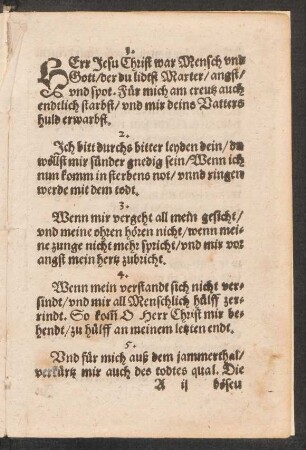 1.
HErr Jesu Christ war Mensch vnd
Gott/der du lidtst Marter/angst/
vnd spot. Für mich am creutz auch
endtlich starbst/vnd mir deins Vatters
huld erwarbst.
2.
Ich bitt durchs bitter leyden dein/du
wöllst mir sünder gnedig sein/Wenn ich
nun komm in sterbens not/vnnd ringen
werde mit dem todt.
3.
Wenn mir vergeht all mein gesicht/
vnd meine ohren hören nicht/wenn mei-
ne zunge nicht mehr spricht/vnd mir vor
angst mein hertz zubricht.
4.
Wenn mein verstandt sich nicht ver-
sindt/vnd mir all Menschlich hülff zer-
rindt. So kom̃ O Herr Christ mir be-
hendt/zu hülff an meinem letzten endt.
5.
Vnd für mich auß dem jammerthal/
verkürtz mir auch des todtes qual. Die
A ij bösen